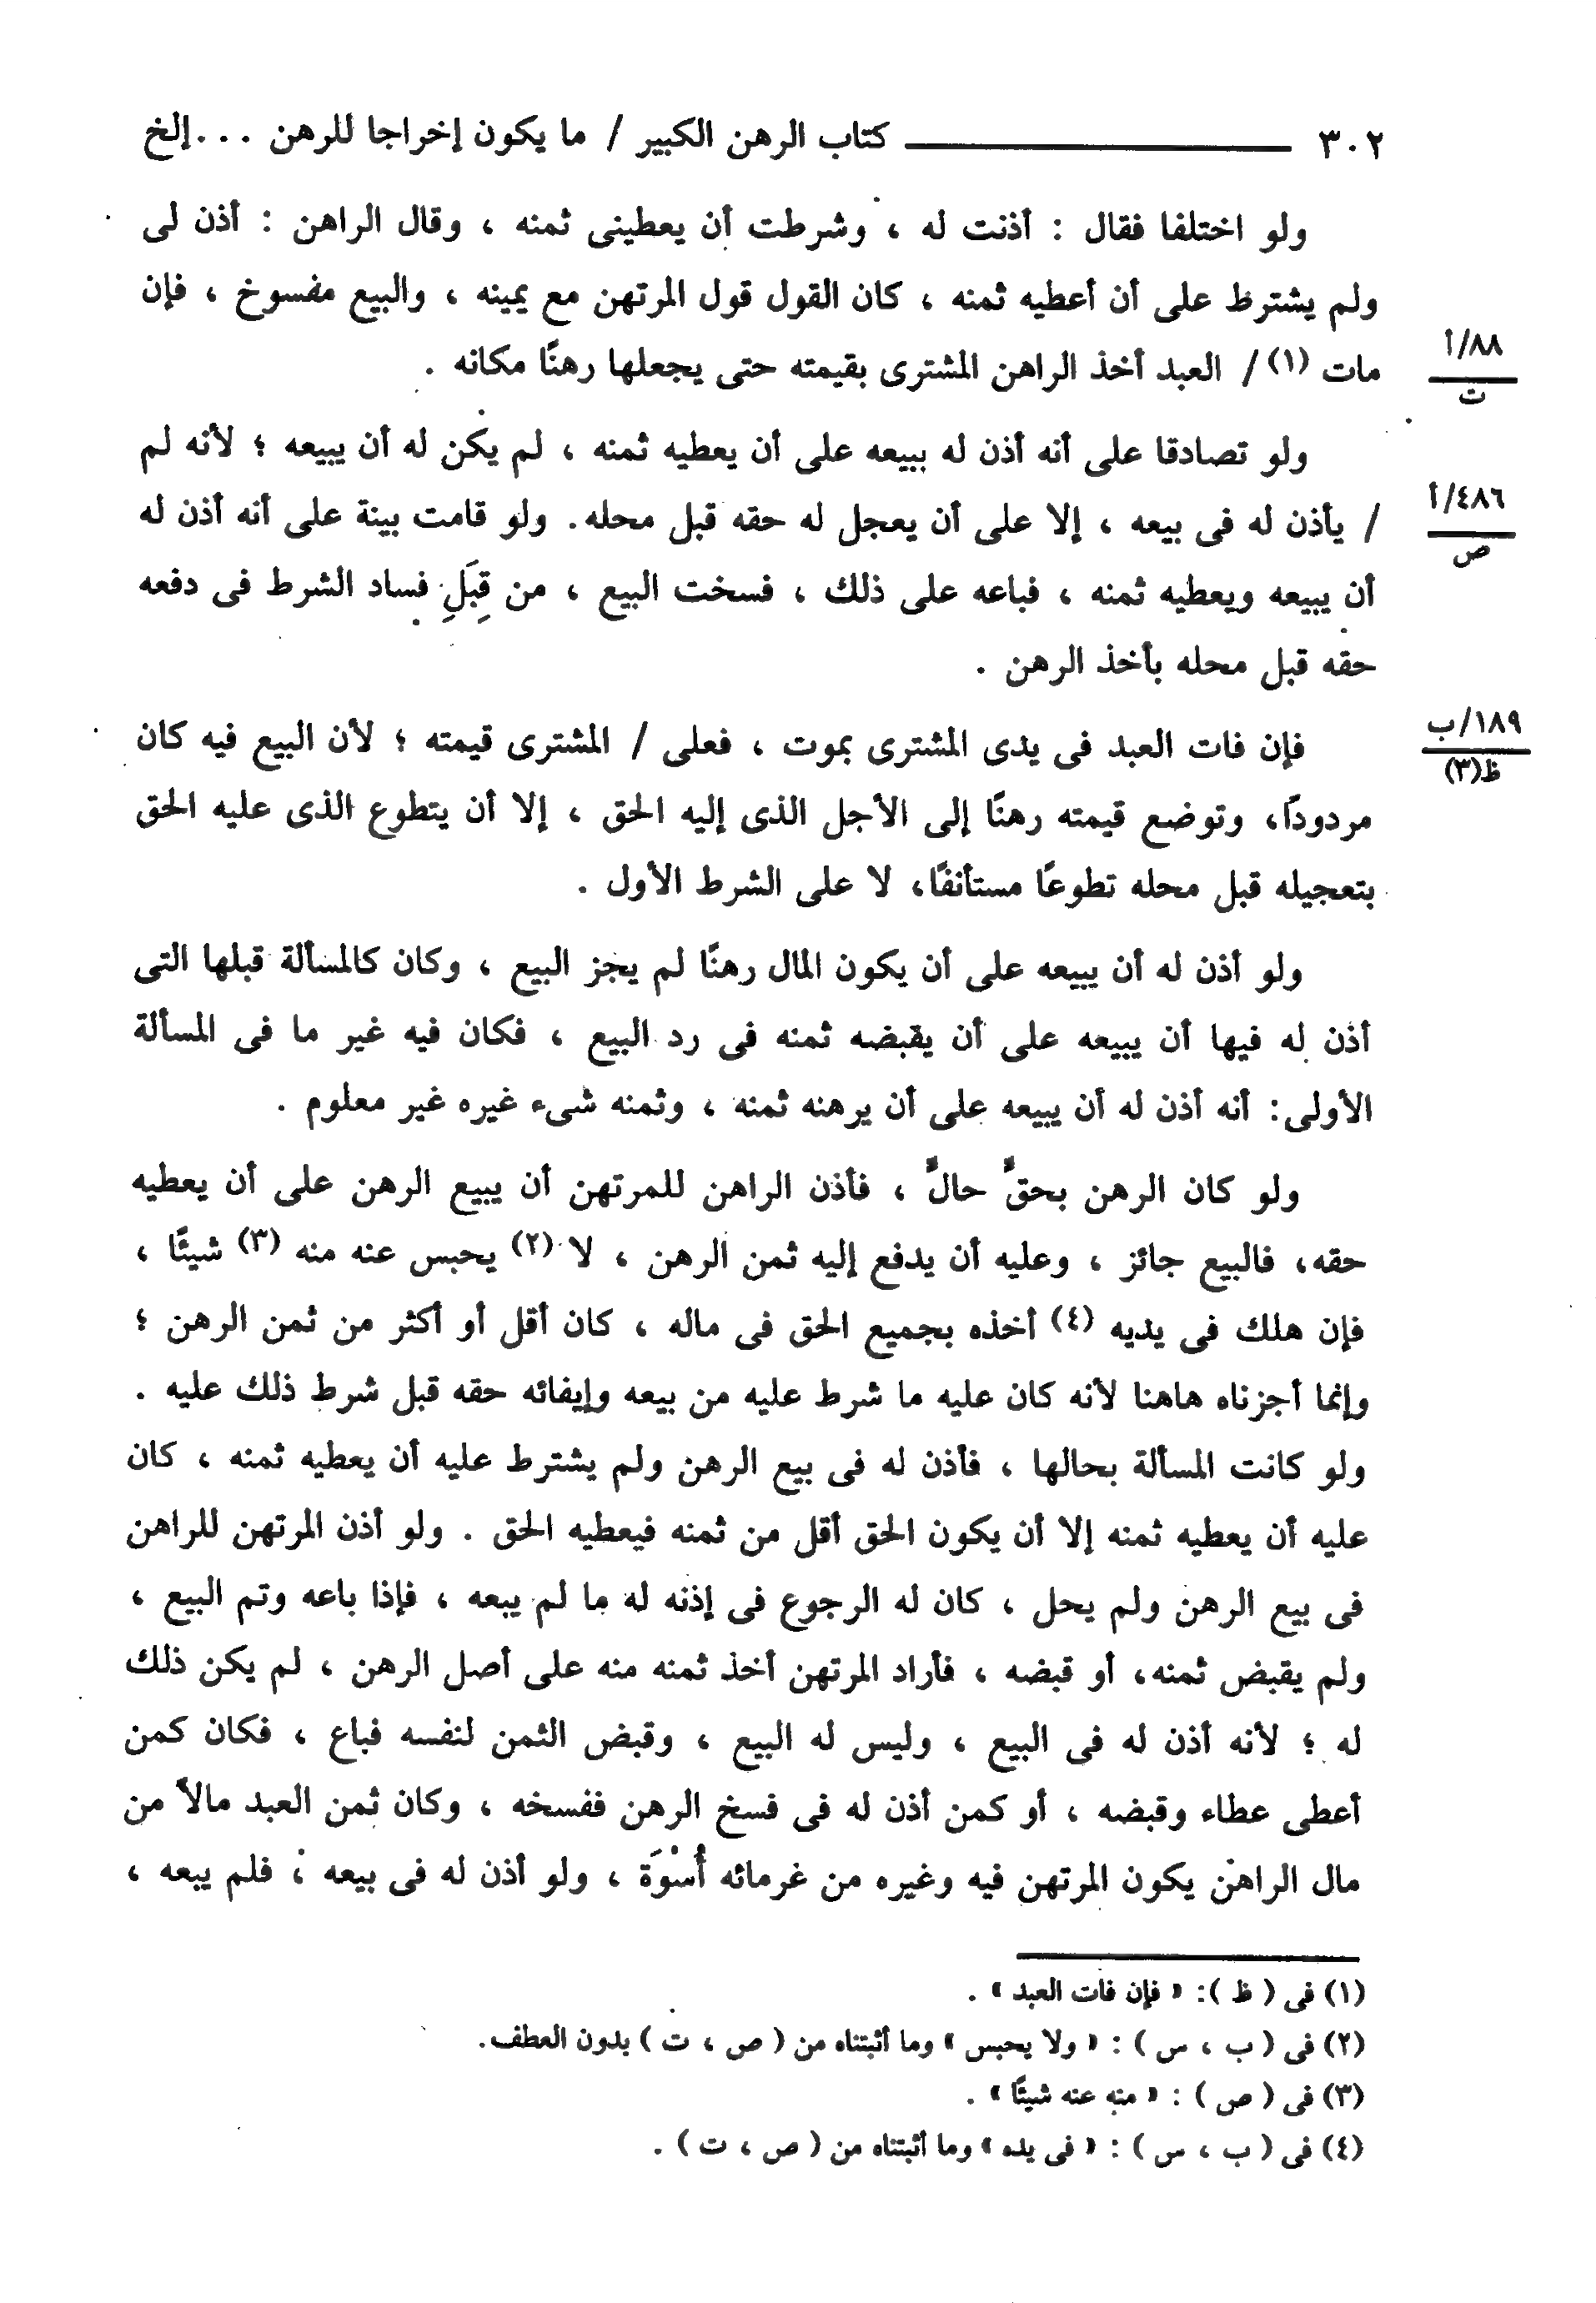 ٣٠٢ كتاب الرهن الكبير / ما يكون إخراجا للرهن ... إلخ
ولو اختلفا فقال : أذنت له ، وشرطت أن يعطينى ثمنه ، وقال الراهن : أذن لى
ولم يشترط على أن أعطيه ثمنه ، كان القول قول المرتهن مع يمينه ، والبيع مفسوخ ، فإن
مات (١) / العبد أخذ الراهن المشترى بقيمته حتى يجعلها رهنًا مكانه .
٨٨/أ
ت
ولو تصادقا على أنه أذن له ببيعه على أن يعطيه ثمنه ، لم يكن له أن يبيعه ؛ لأنه لم
/ يأذن له فى بيعه ، إلا على أن يعجل له حقه قبل محله. ولو قامت بينة على أنه أذن له
٤٨٦/أ
ص
أن يبيعه ويعطيه ثمنه ، فباعه على ذلك ، فسخت البيع ، من قِبَلِ فساد الشرط فى دفعه
حقه قبل محله بأخذ الرهن .
فإن فات العبد فى يدى المشترى بموت ، فعلى / المشترى قيمته ؛ لأن البيع فيه كان
١٨٩/ب
ظ(٣)
مردودًا، وتوضع قيمته رهنًا إلى الأجل الذى إليه الحق ، إلا أن يتطوع الذى عليه الحق
بتعجيله قبل محله تطوعًا مستأنفًا، لا على الشرط الأول .
ولو أذن له أن يبيعه على أن يكون المال رهنًا لم يجز البيع ، وكان كالمسألة قبلها التى
أذن له فيها أن يبيعه على أن يقبضه ثمنه فى رد البيع ، فكان فيه غير ما فى المسألة
الأولى: أنه أذن له أن يبيعه على أن يرهنه ثمنه ، وثمنه شىء غيره غير معلوم .
ولو كان الرهن بحقٍّ حالٍّ ، فأذن الراهن للمرتهن أن يبيع الرهن على أن يعطيه
حقه، فالبيع جائز ، وعليه أن يدفع إليه ثمن الرهن ، لا (٢) يحبس عنه منه (٣) شيئًا ،
فإن هلك فى يديه (٤) أخذه بجميع الحق فى ماله ، كان أقل أو أكثر من ثمن الرهن ؛
وإنما أجزناه هاهنا لأنه كان عليه ما شرط عليه من بيعه وإيفائه حقه قبل شرط ذلك عليه .
ولو كانت المسألة بحالها ، فأذن له فى بيع الرهن ولم يشترط عليه أن يعطيه ثمنه ، كان
عليه أن يعطيه ثمنه إلا أن يكون الحق أقل من ثمنه فيعطيه الحق . ولو أذن المرتهن للراهن
فى بيع الرهن ولم يحل ، كان له الرجوع فى إذنه له ما لم يبعه ، فإذا باعه وتم البيع ،
ولم يقبض ثمنه، أو قبضه ، فأراد المرتهن أخذ ثمنه منه على أصل الرهن ، لم يكن ذلك
له ؛ لأنه أذن له فى البيع ، وليس له البيع ، وقبض الثمن لنفسه فباع ، فكان كمن
أعطى عطاء وقبضه ، أو كمن أذن له فى فسخ الرهن ففسخه ، وكان ثمن العبد مالاً من
مال الراهن يكون المرتهن فيه وغيره من غرمائه أُسْوَة ، ولو أذن له فى بيعه ، فلم يبعه ،
(١) فى ( ظ ): « فإن فات العبد » .
(٢) فى ( ب ، س ) : « ولا يحبس » وما أثبتناه من ( ص ، ت ) بدون العطف.
(٣) فى ( ص ) : « منه عنه شيئًا » .
(٤) فى ( ب ، س ) : « فى يده » وما أثبتناه من ( ص ، ت ) .